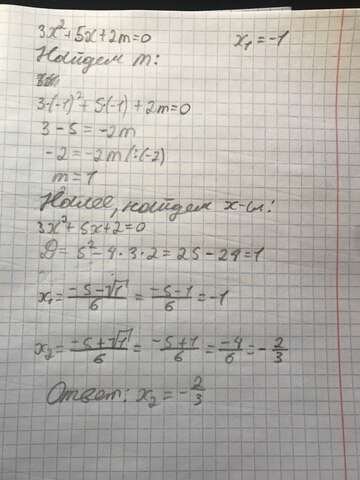 3x²+5x+2m=0 x₁=-1
Найдем m:
3·(-1)²+5·(-1)+2m=0
3-5=-2m
-2=-2m(:(-2)
m=1
Далее, найдем x-сы:
3x²+5x+2=0
D=5²-4·3·2=25-24=1
x₁=(-5-√1)/6=(-5-1)/6=-1
x₂=(-5+√1)/6=(-5+1)/6=-4/6=-2/3
Ответ: x₂=-2/3